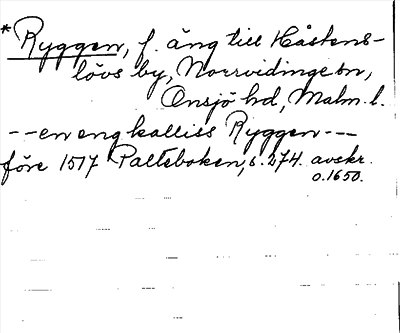 *Ryggen, f. äng till Håstens-
lövs by, Norrvidinge sn,
Onsjö hd, Malm. l.
--en eng kalliss Ryggen---
före 1517 Palteboken, s. 274. avskr.
o. 1650.